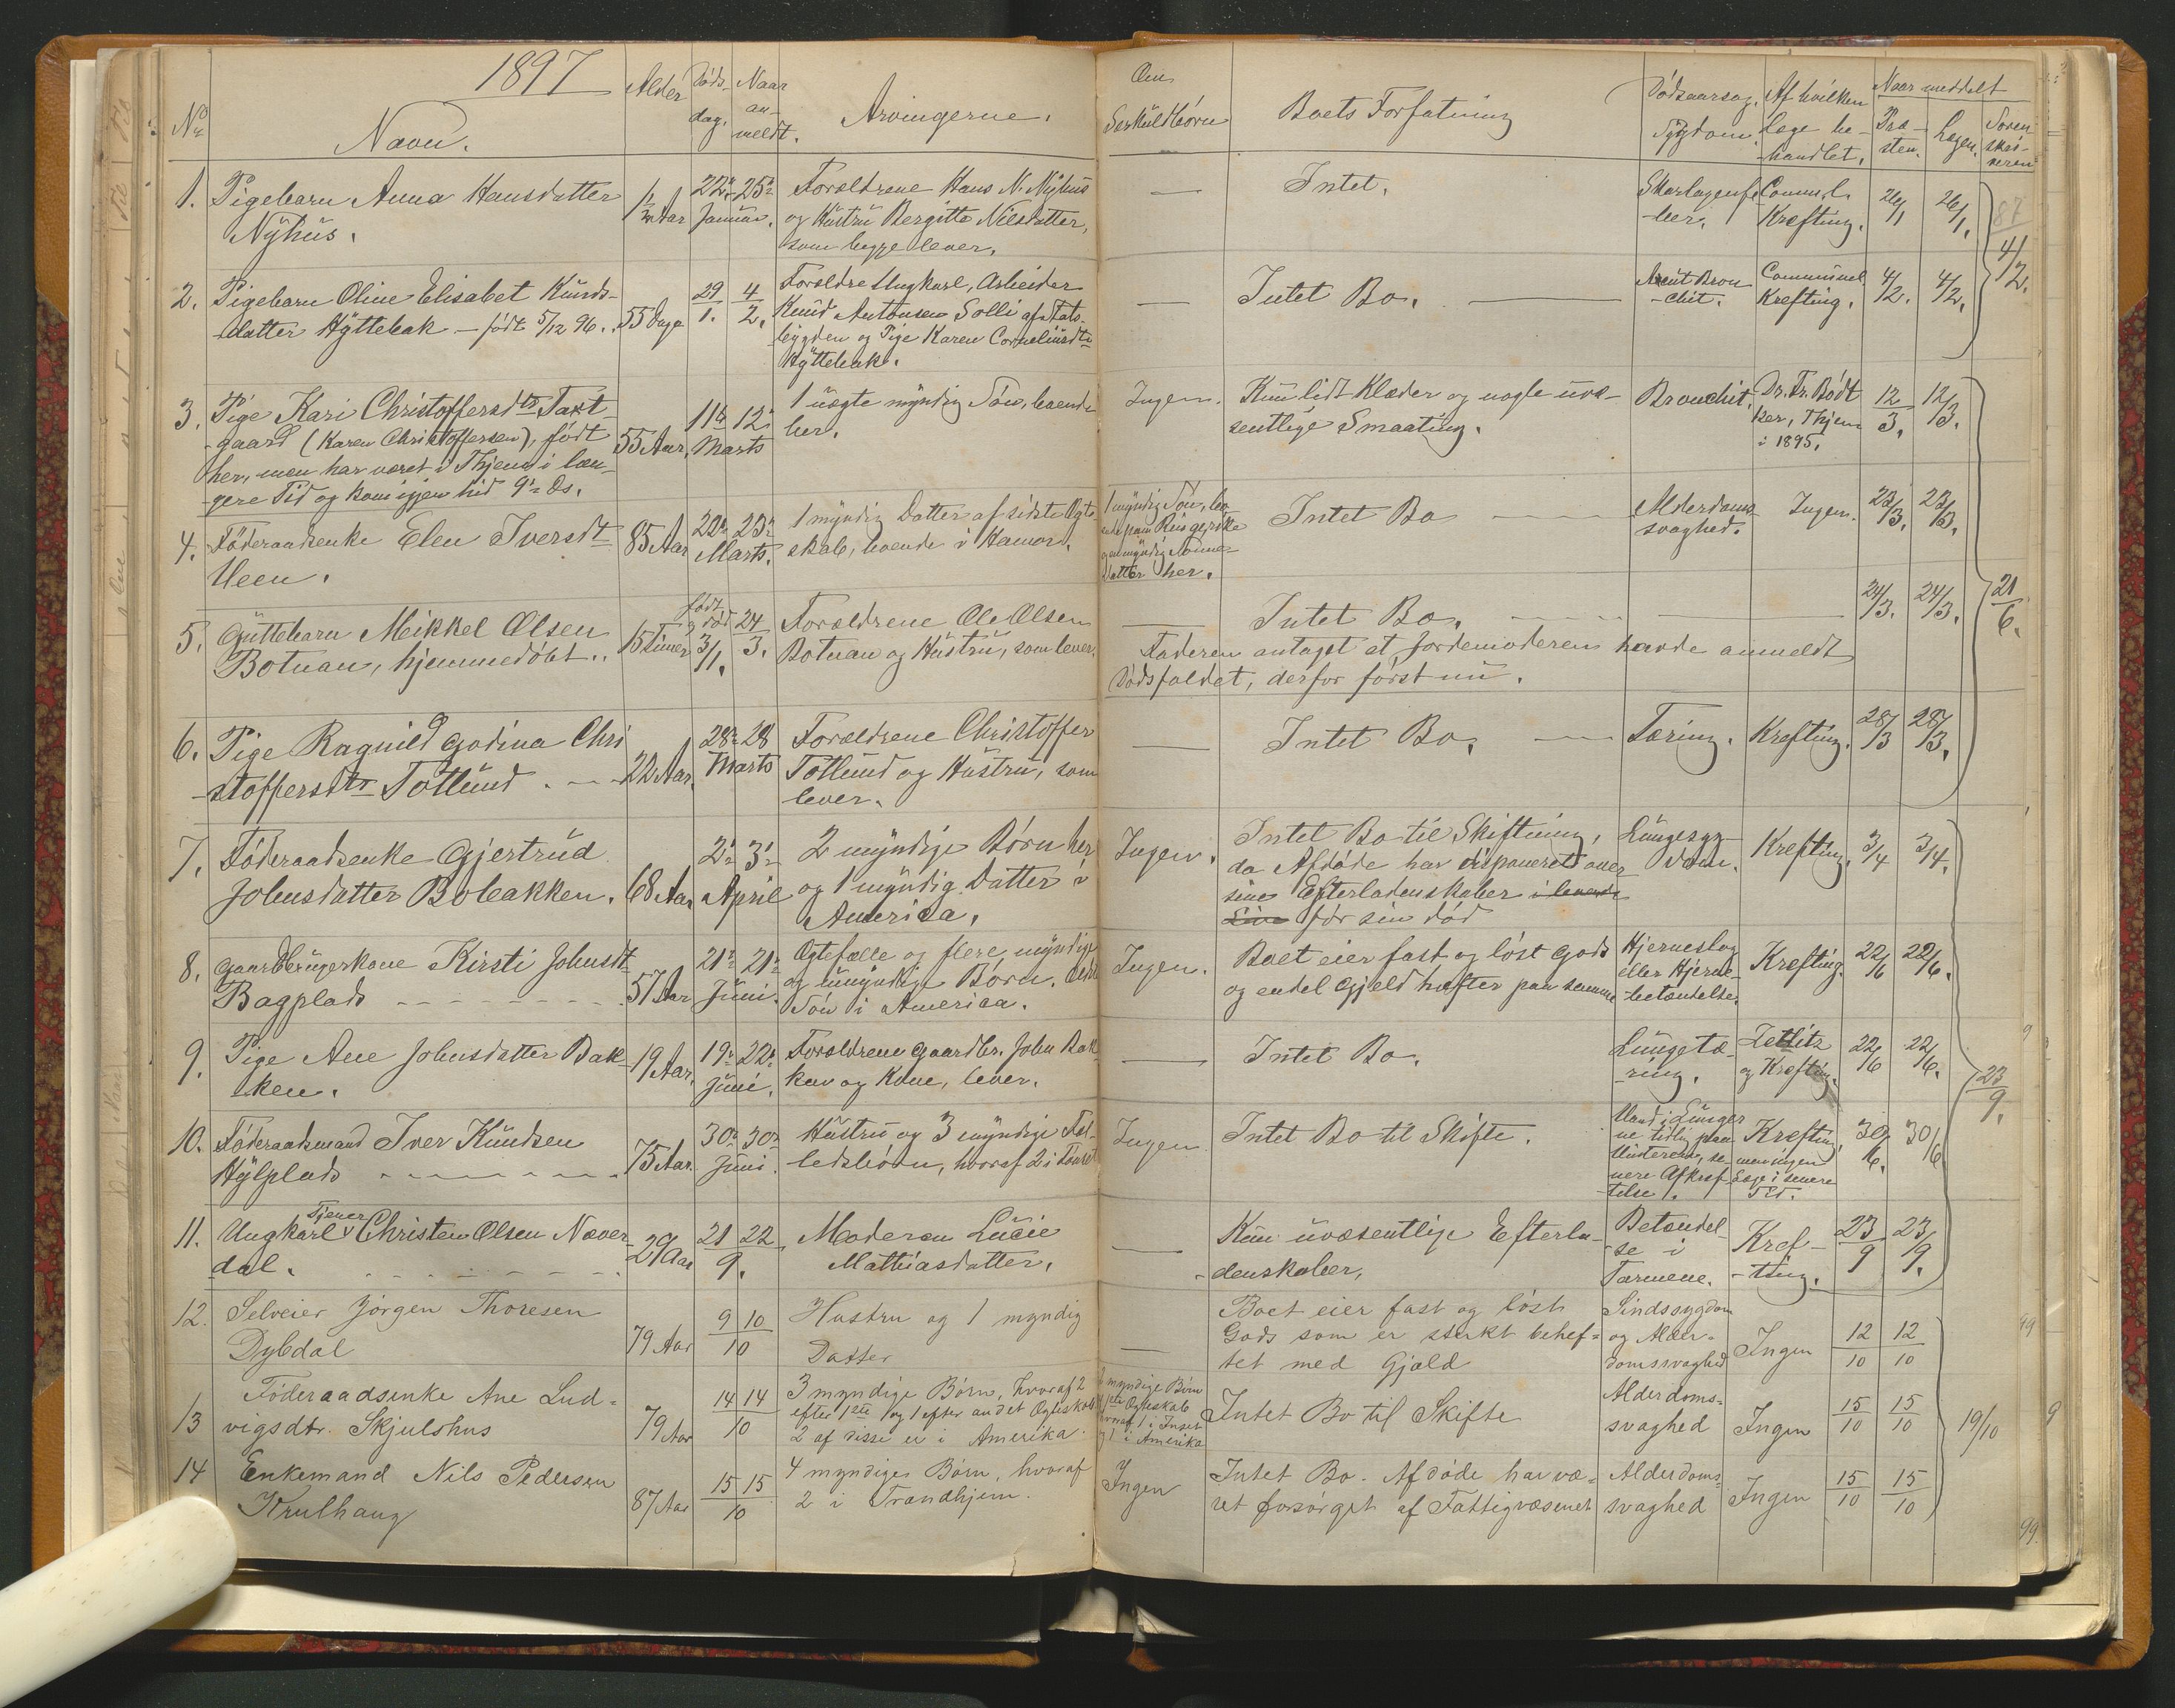 1897
No
Navn.
Alder
Døds-
dag.
Naar
an-
meldt.
Arvingerne.
Om
Særkuldbørn
Boets Forfatning
Dødsaarsag.
Sygdom.
Af hvilken
Læge be-
handlet.
Naar meddelt
Præ-
sten.
Lægen.
Soren-
skri-
veren
1. Pigebarn Anna Hansdatter
Nyhus.
1/2 Aar
22de 25de
Januar.
Forældrene Hans N. Nyhus
og Hustru Bergitte Nilsdatter,
som begge lever.
—
Intet.
Skarlagenfe-
ber.
Comm.l.
Kræfting.
26/1
26/1.
87
4/2.
2. Pigebarn Oline Elisabet Knuds-
datter Hyttebak — født 5/12 96.
55 Dage
29/1.
4/2.
Forældre Ungkarl, Arbeider
Knud Antonsen Solli af Fats-
bygden og Pige Karen Corneliusdtr
Hyttebak.
—
Intet Bo.
Acut Bron
-chit.
Communel.
Krefting.
4/2.
4/2.
3. Pige Kari Christoffersdtr Tart-
gaard (Karen Christoffersen), født
her, men har været i Thjem i læn-
gere Tid og kom igjen hid 9de Ds.
55 Aar.
11te 12te
Marts
1 uægte myndig Søn, boende
her.
Ingen.
Kun lidt Klæder og nogle uvæ-
sentlige Smaating.
Bronchit.
Dr. Fr. Bødt
ker, Thjem
i 1895.
12/3.
12/3.
4. Føderaadsenke Elen Iversdtr
Ueen.
85 Aar
22de 23de
Marts.
1 myndig Datter af sidste Ægte-
skab, boende i Hamor.
1 myndig Søn, bo-
ende paa Ringerike
og en myndig Sønne-
Datter her.
Intet Bo
Alderdoms-
svaghed.
Ingen.
23/3.
23/3.
5. Guttebarn Mikkel Olsen
Botnan, hjemmedøbt.
15 Timer
født
og død
3/1.
24/3.
Forældrene Ole Olsen
Botnan og Hustru, som lever.
—
Intet Bo.
24/3.
24/3.
Faderen antaget at Jordemoderen havde anmeldt
Dødsfaldet, derfor først nu.
21/6.
6. Pige Ragnild Godina Chri
stoffersdtr Totlund.
22 Aar.
28de 28
Marts
Forældrene Christoffer
Totlund og Hustru, som
lever.
—
Intet Bo.
Tæring.
Krefting.
28/3
28/3.
7. Føderaadsenke Gjertrud
Johnsdatter Bobakken.
68 Aar
2de 3de
April
2 myndige Børn her
og 1 myndig Datter i
America.
Ingen.
Intet Bo til Skiftning,
da Afdøde har disponeret over
sine Efterladenskaber i levende
Live før sin død
Lungesyg-
dom.
Krefting.
3/4
3/4.
8. Gaardbrugerkone Kirsti Johnsdtr
Bagplads
57 Aar
21de 21de
Juni.
Ægtefælle og flere myndige
og umyndige Børn.
Søn i America.
Ingen.
Boet eier fast og løst Gods
og endel Gjeld hefter paa samme
Hjerneslag
eller Hjerne-
betændelse.
Krefting.
22/6
22/6.
9. Pige Ane Johnsdatter Bak-
ken.
19 Aar.
19de 22de
Juni.
Forældrene Gaardbr. John Bak-
ken og Kone, lever.
—
Intet Bo.
Lungetæ-
ring.
Zetlitz
og Kræfting.
22/6
22/6.
23/9.
10. Føderaadsmand Iver Knudsen
Hylplads
75 Aar.
30te 30te
Juni.
Hustru og 3 myndige Fæl-
ledsbørn, hvoraf 2 i Tønset
Ingen
Intet Bo til Skifte.
Vand i Lunger
ne tidlig paa
Vinteren, se-
nere Afkræf-
telse.
Krefting,
men ingen
Læge i senere
Tid.
30/6.
30/6
11. Ungkarl Tjener Christen Olsen Næver-
dal.
29 Aar
21 22
9.
Moderen Lucie
Mathiasdatter.
—
Kun uvæsentlige Efterla-
denskaber.
Betændel-
se i
Tarmene.
Kref-
ting.
23/9
23/9.
12. Selveier Jørgen Thoresen
Dybdal
79 Aar
9 10
10
Hustru og 1 myndig
Datter
—
Boet eier fast og løst
Gods som er sterkt behef-
tet med Gjæld
Sindssygdom
og Alder-
domssvaghed
Ingen
12/10
12/10
13 Føderaadsenke Ane Lud-
vigsdtr. Skjulshus
79 Aar
14 14
10
3 myndige Børn, hvoraf 2
efter 1ste og 1 efter andet Ægteskab
2 af disse er i Amerika.
myndige Børn
1ste Ægteskab
hvoraf 1 i Inset
og 1 i Amerika
Intet Bo til Skifte
Alderdoms-
svaghed
Ingen
15/10
15/10
19/10
14 Enkemand Nils Pedersen
Krulhaug
87 Aar
15 15
10
4 myndige Børn, hvoraf
2 i Trondhjem.
Ingen
Intet Bo. Afdøde har væ-
ret forsørget af Fattigvæsenet
Alderdoms-
svaghed
Ingen
15/10
15/10